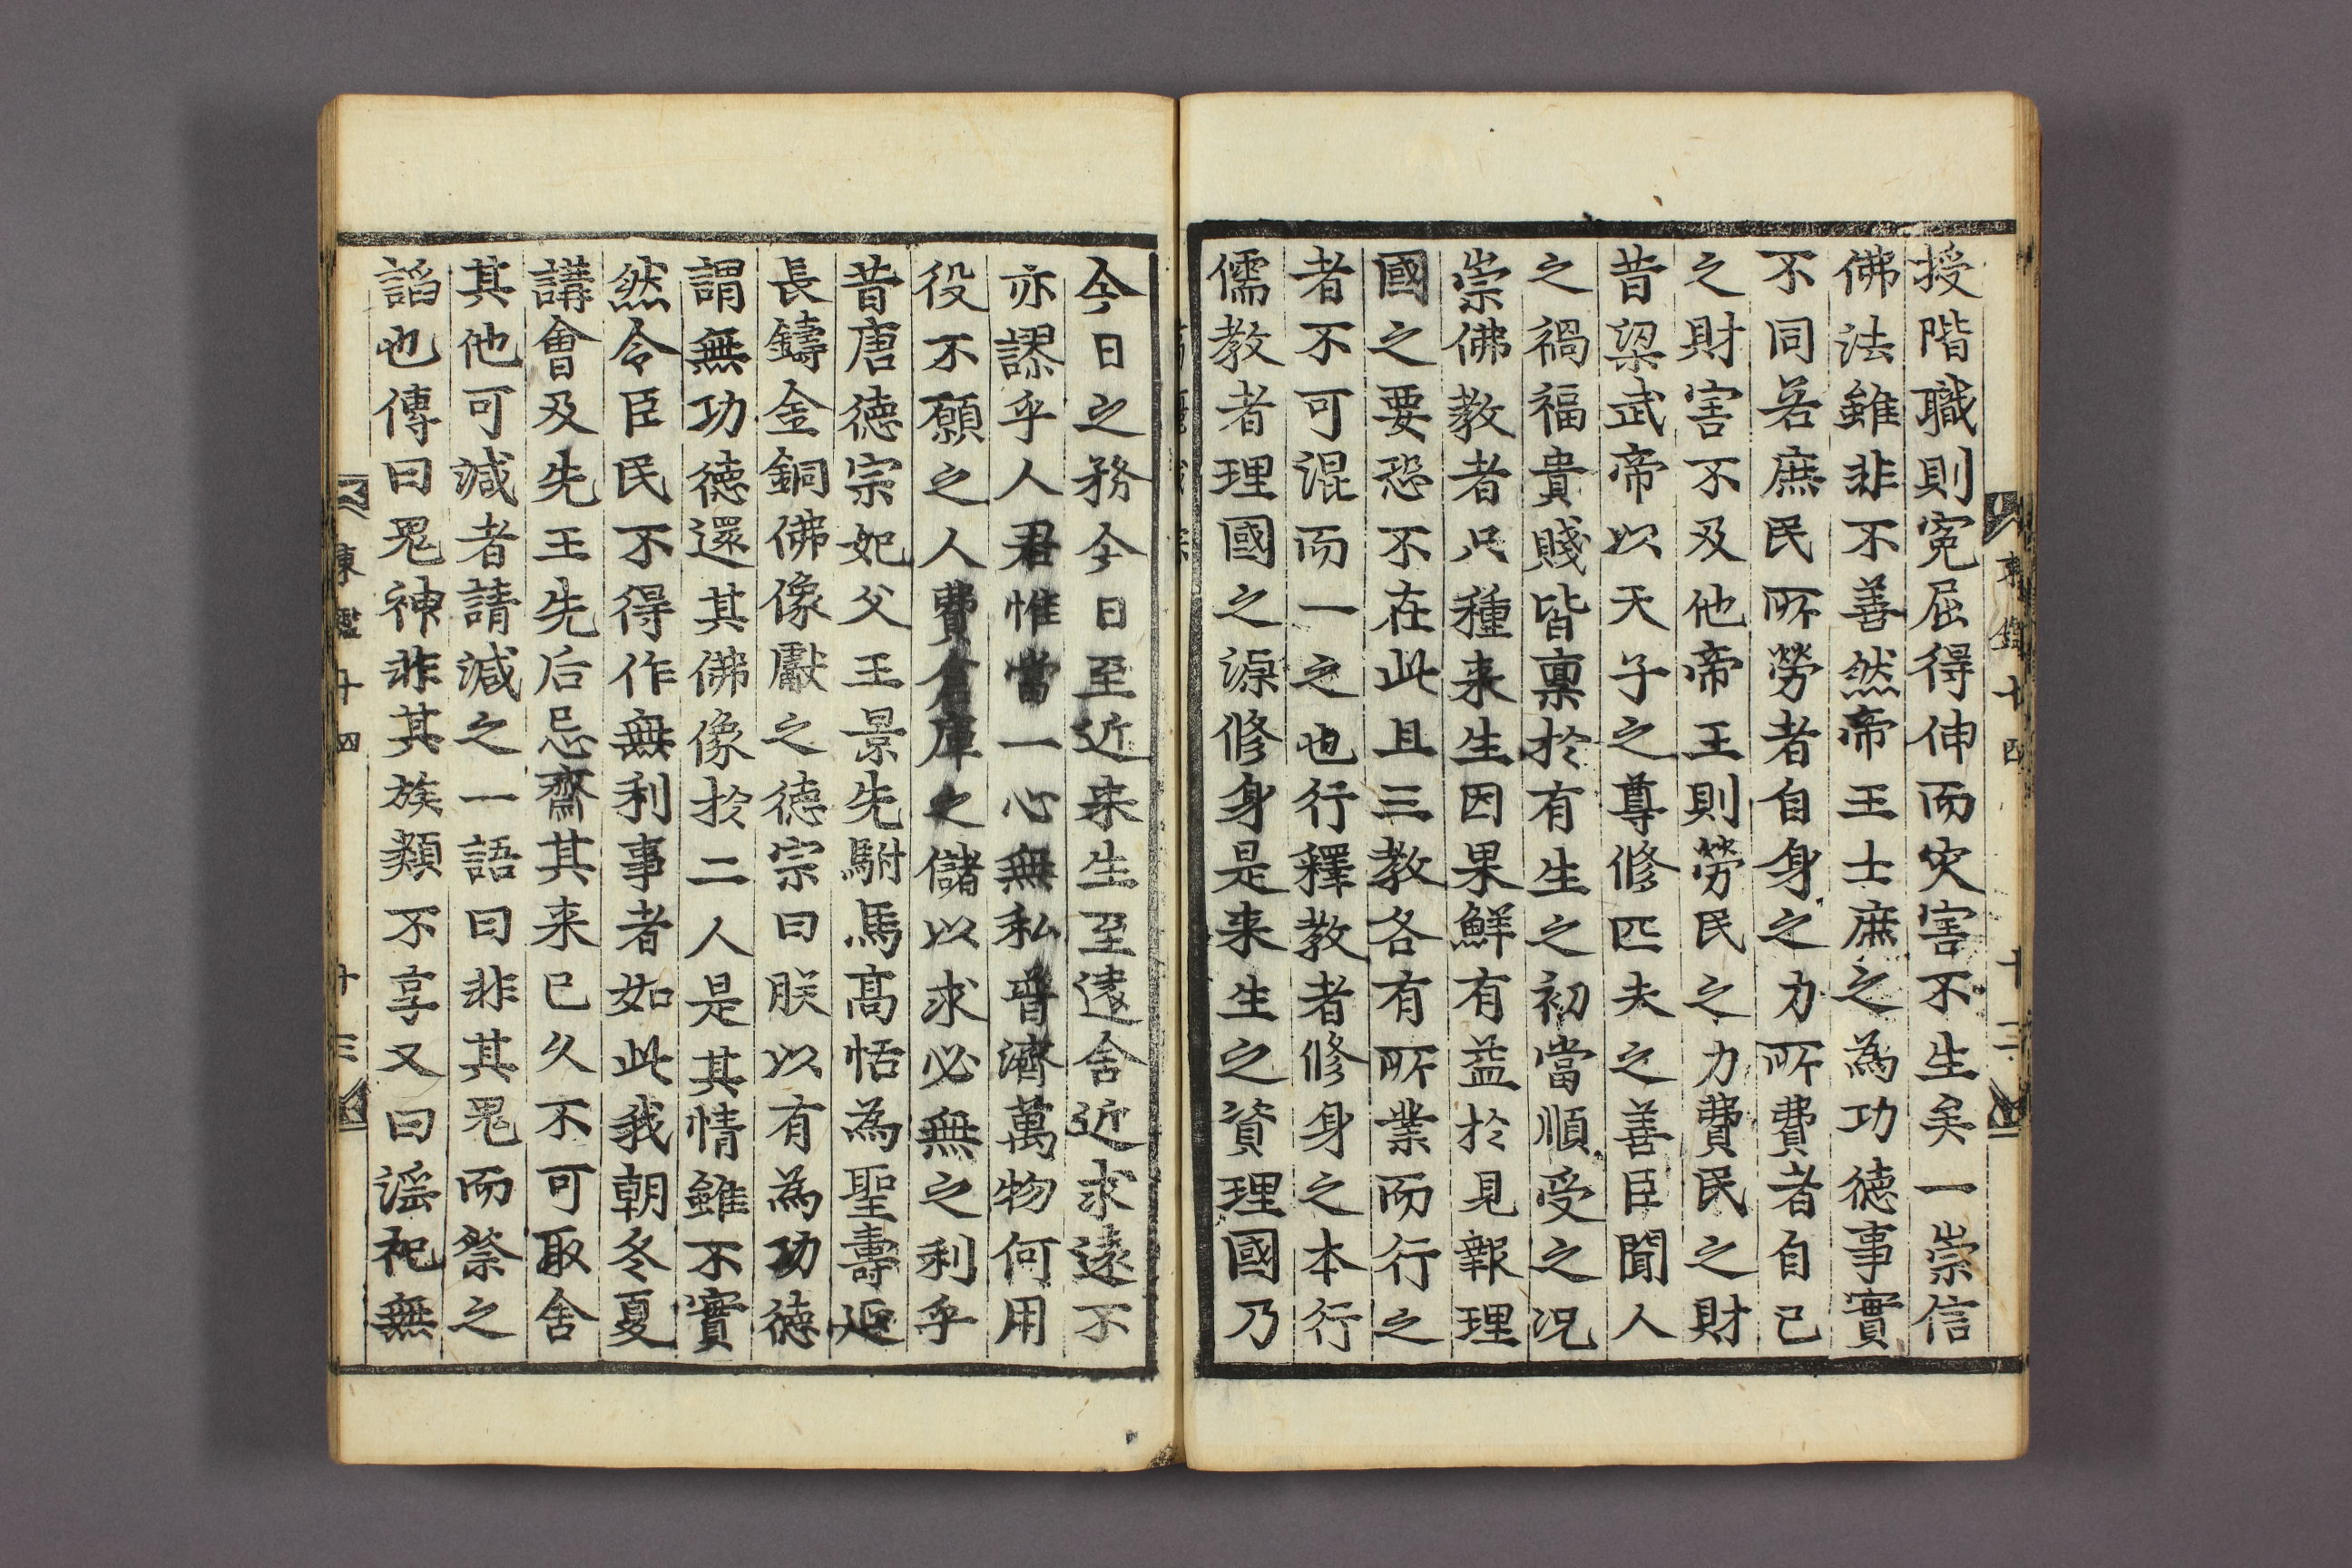 授階職則寃屈得伸而灾害不生矣一崇信
佛法雖非不善然帝王士庶之為功德事實
不同若庶民所勞者自身之力所費者自己
之財害不及他帝王則勞民之力費民之財
昔梁武帝以天子之尊修匹夫之善臣聞人
之禍福貴賤皆稟於有生之初當順受之况
崇佛教者只種来生因果鮮有益於見報理
國之要恐不在此且三教各有所業而行之
者不可混而一之也行釋教者修身之本行
儒教者理國之源修身是来生之資理國乃
東鑑十四
十三
今日之務今日至近来生至遠舍近求遠不
亦謬乎人君惟當一心無私普濟萬物何用
役不願之人費倉庫之儲以求必無之利乎
昔唐德宗妃父王景先駙馬高恬為聖壽延
長鑄金銅佛像獻之德宗曰朕以有為功德
謂無功德還其佛像於二人是其情雖不實
然令臣民不得作無利事者如此我朝冬夏
講會及先王先后忌齋其来已久不可取舍
其他可減者請減之一語曰非其鬼而祭之
謟也傳曰鬼神非其族類不享又曰滛祀無
東鑑十四
十三